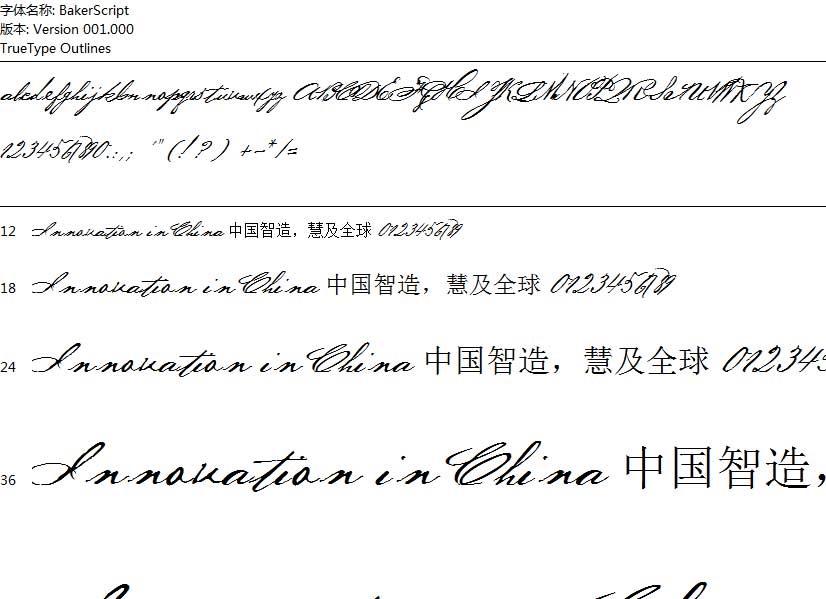 字体名称: BakerScript
版本: Version 001.000
TrueType Outlines
abcdefghijklmnopqrstuvwxyz ABCDEFGHIJKLMNOPQRSTUVWXYZ
1234567890.:,; '" (!?) +-*/=
12 Innovation in China 中国智造，慧及全球 0123456789
18 Innovation in China 中国智造，慧及全球 0123456789
24 Innovation in China 中国智造，慧及全球 012345
36 Innovation in China 中国智造，